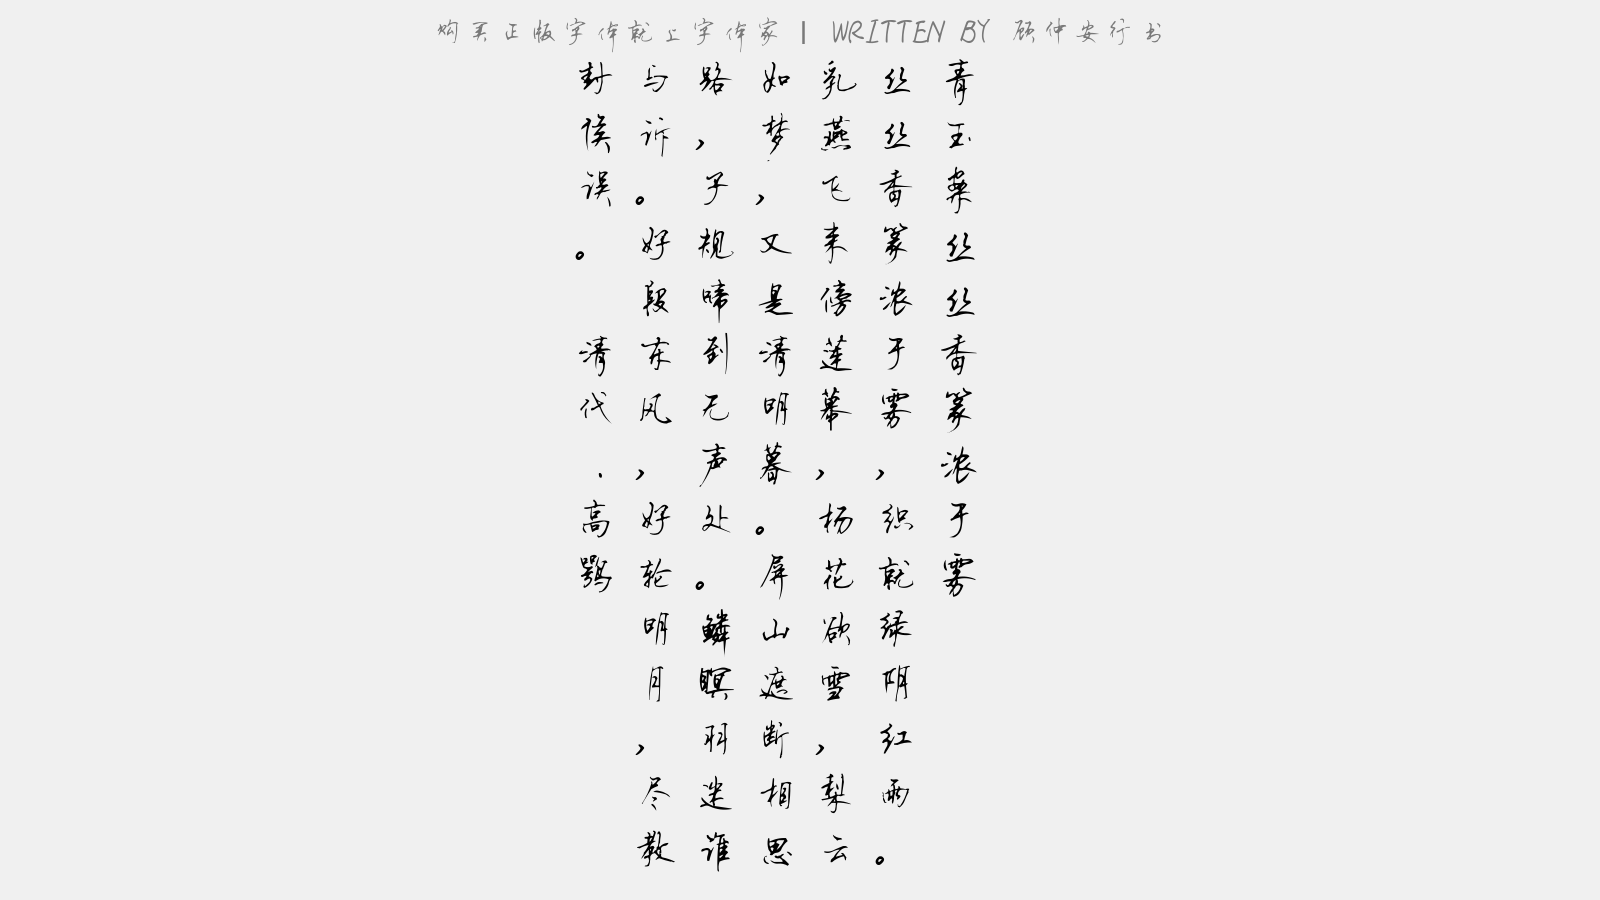 购买正版字体就上字体家 | WRITTEN BY 顾仲安行书
青玉案丝丝香篆浓于雾
丝丝香篆浓于雾,织就绿阴红雨。
乳燕飞来傍莲幕,杨花欲雪,梨云
如梦,又是清明暮。屏山遮断相思
路,子规啼到无声处。鳞瞑羽迷谁
与诉。好段东风,好轮明月,尽教
封侯误。
清代.高鹗